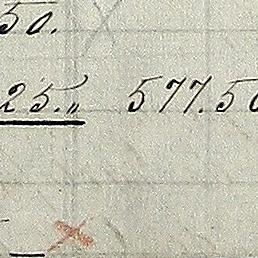 50.
25.„ 577.50